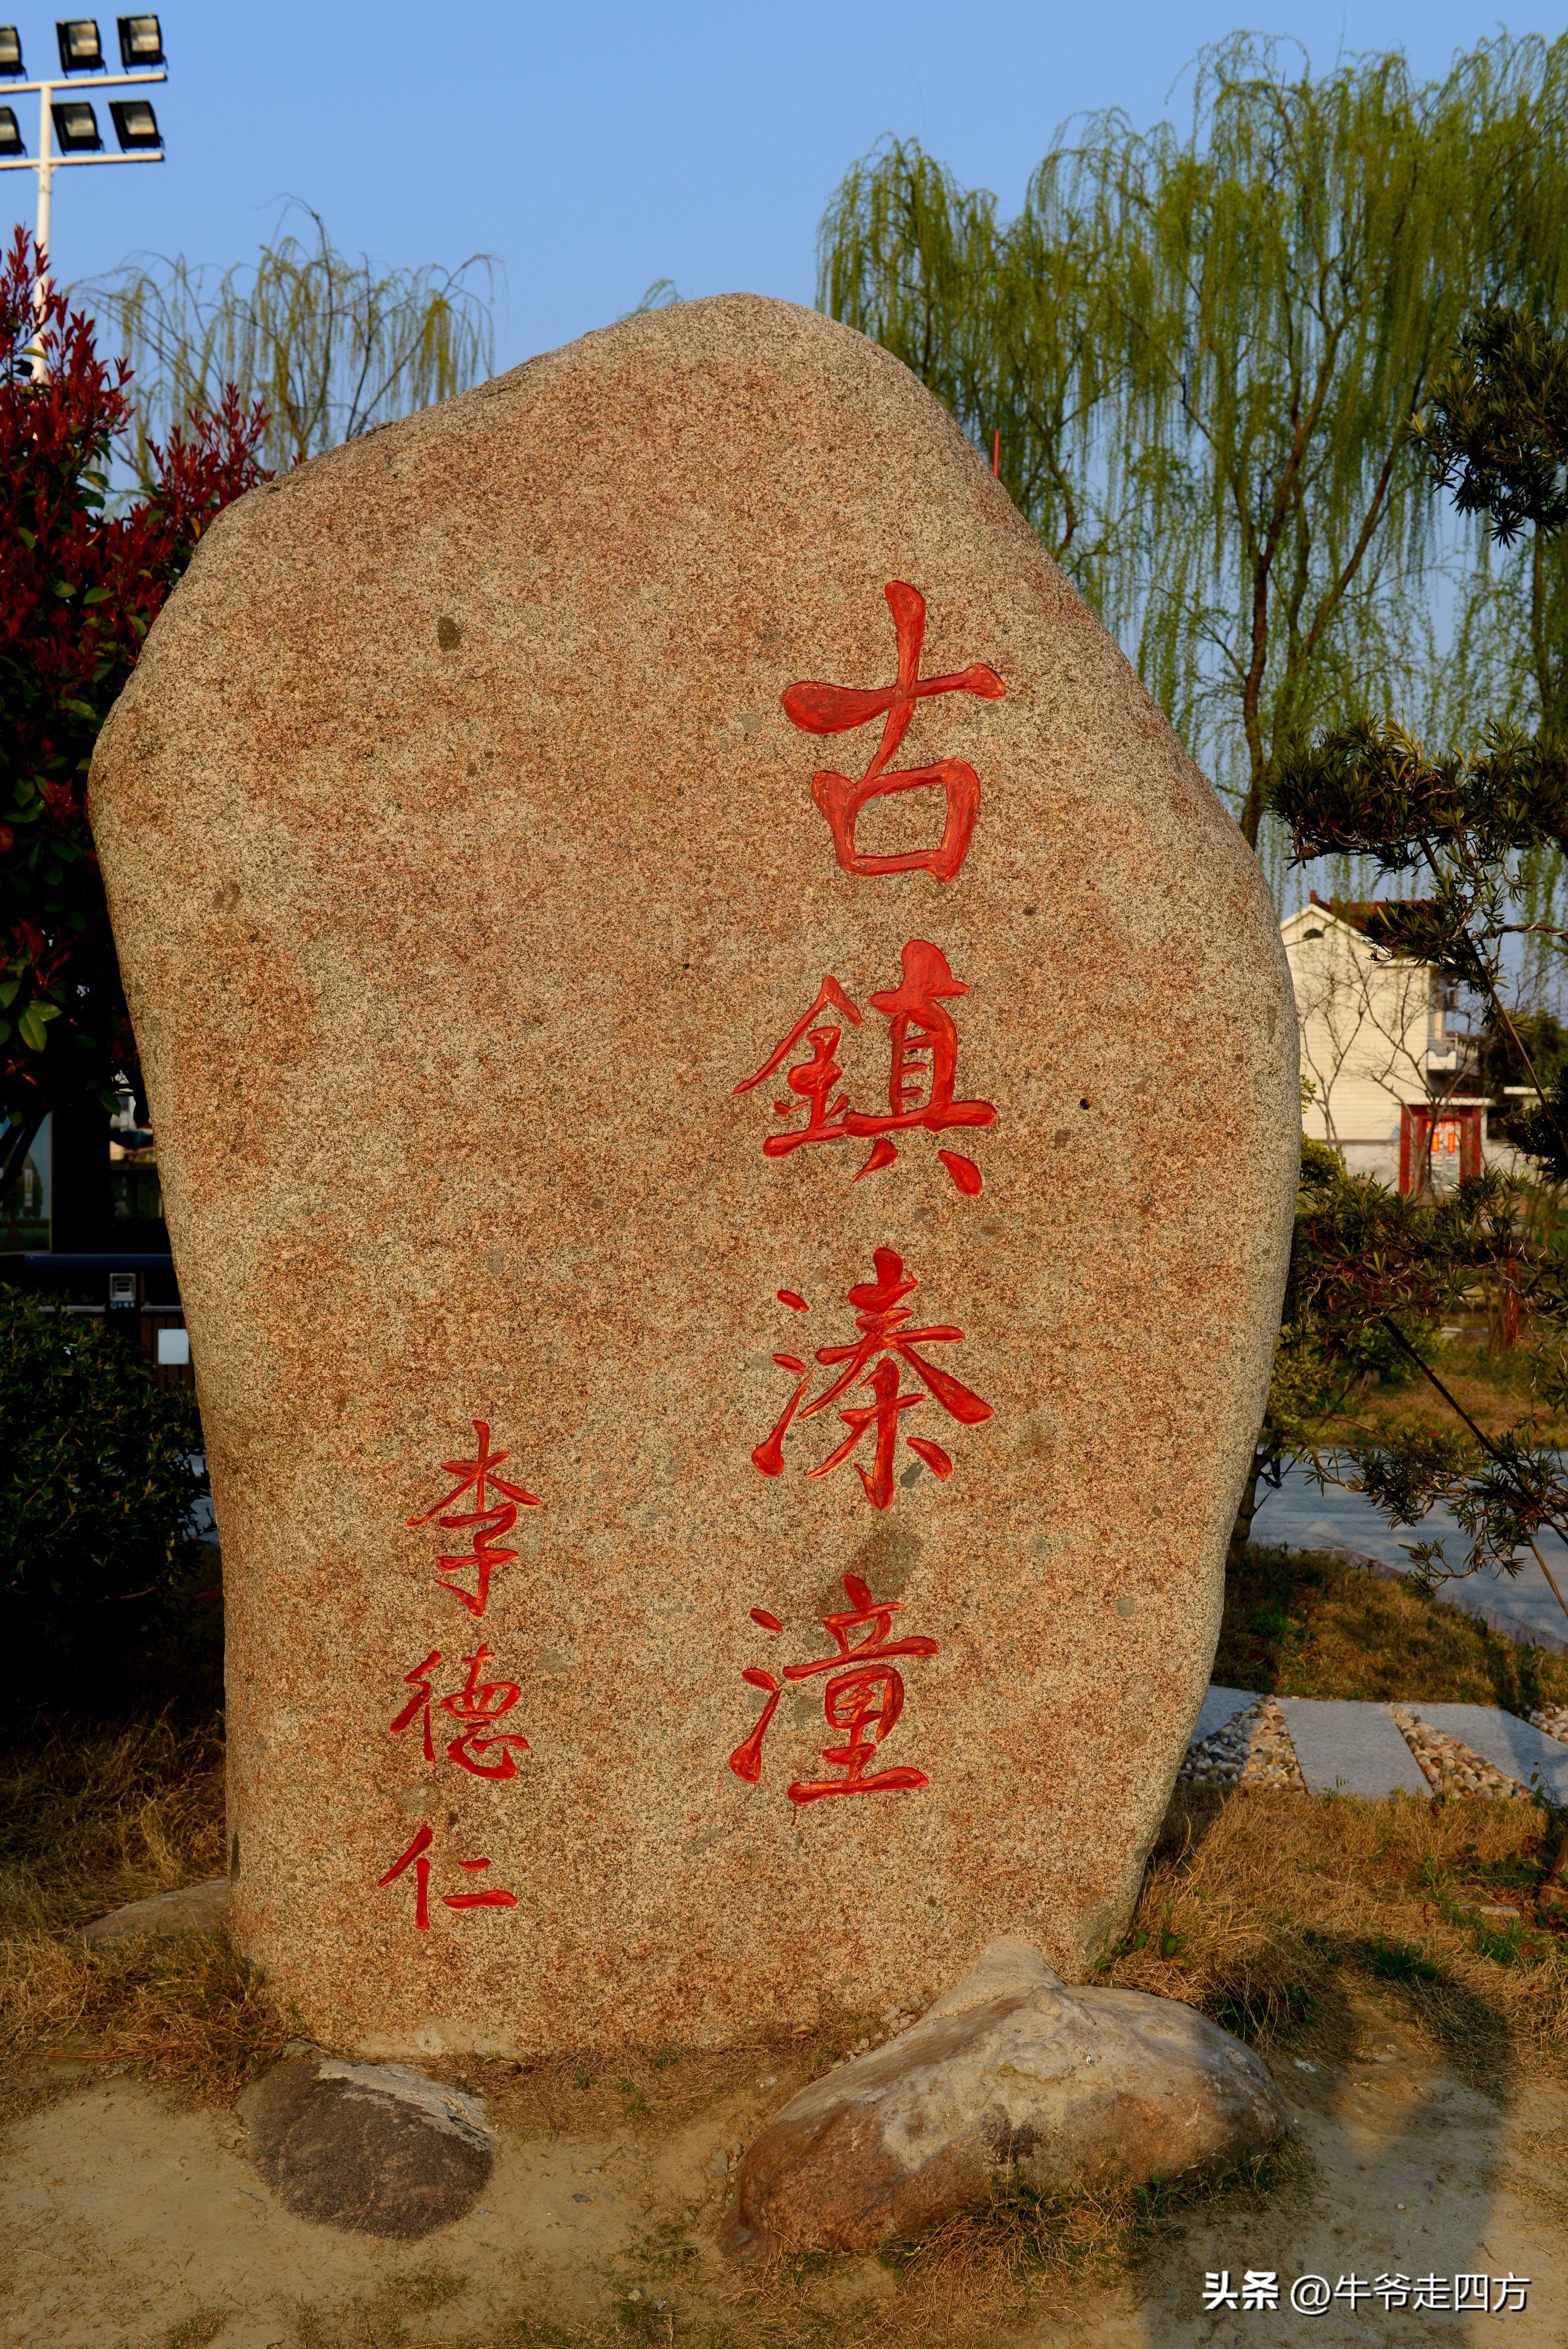 古鎮溱潼
李德仁
头条 @牛爷走四方